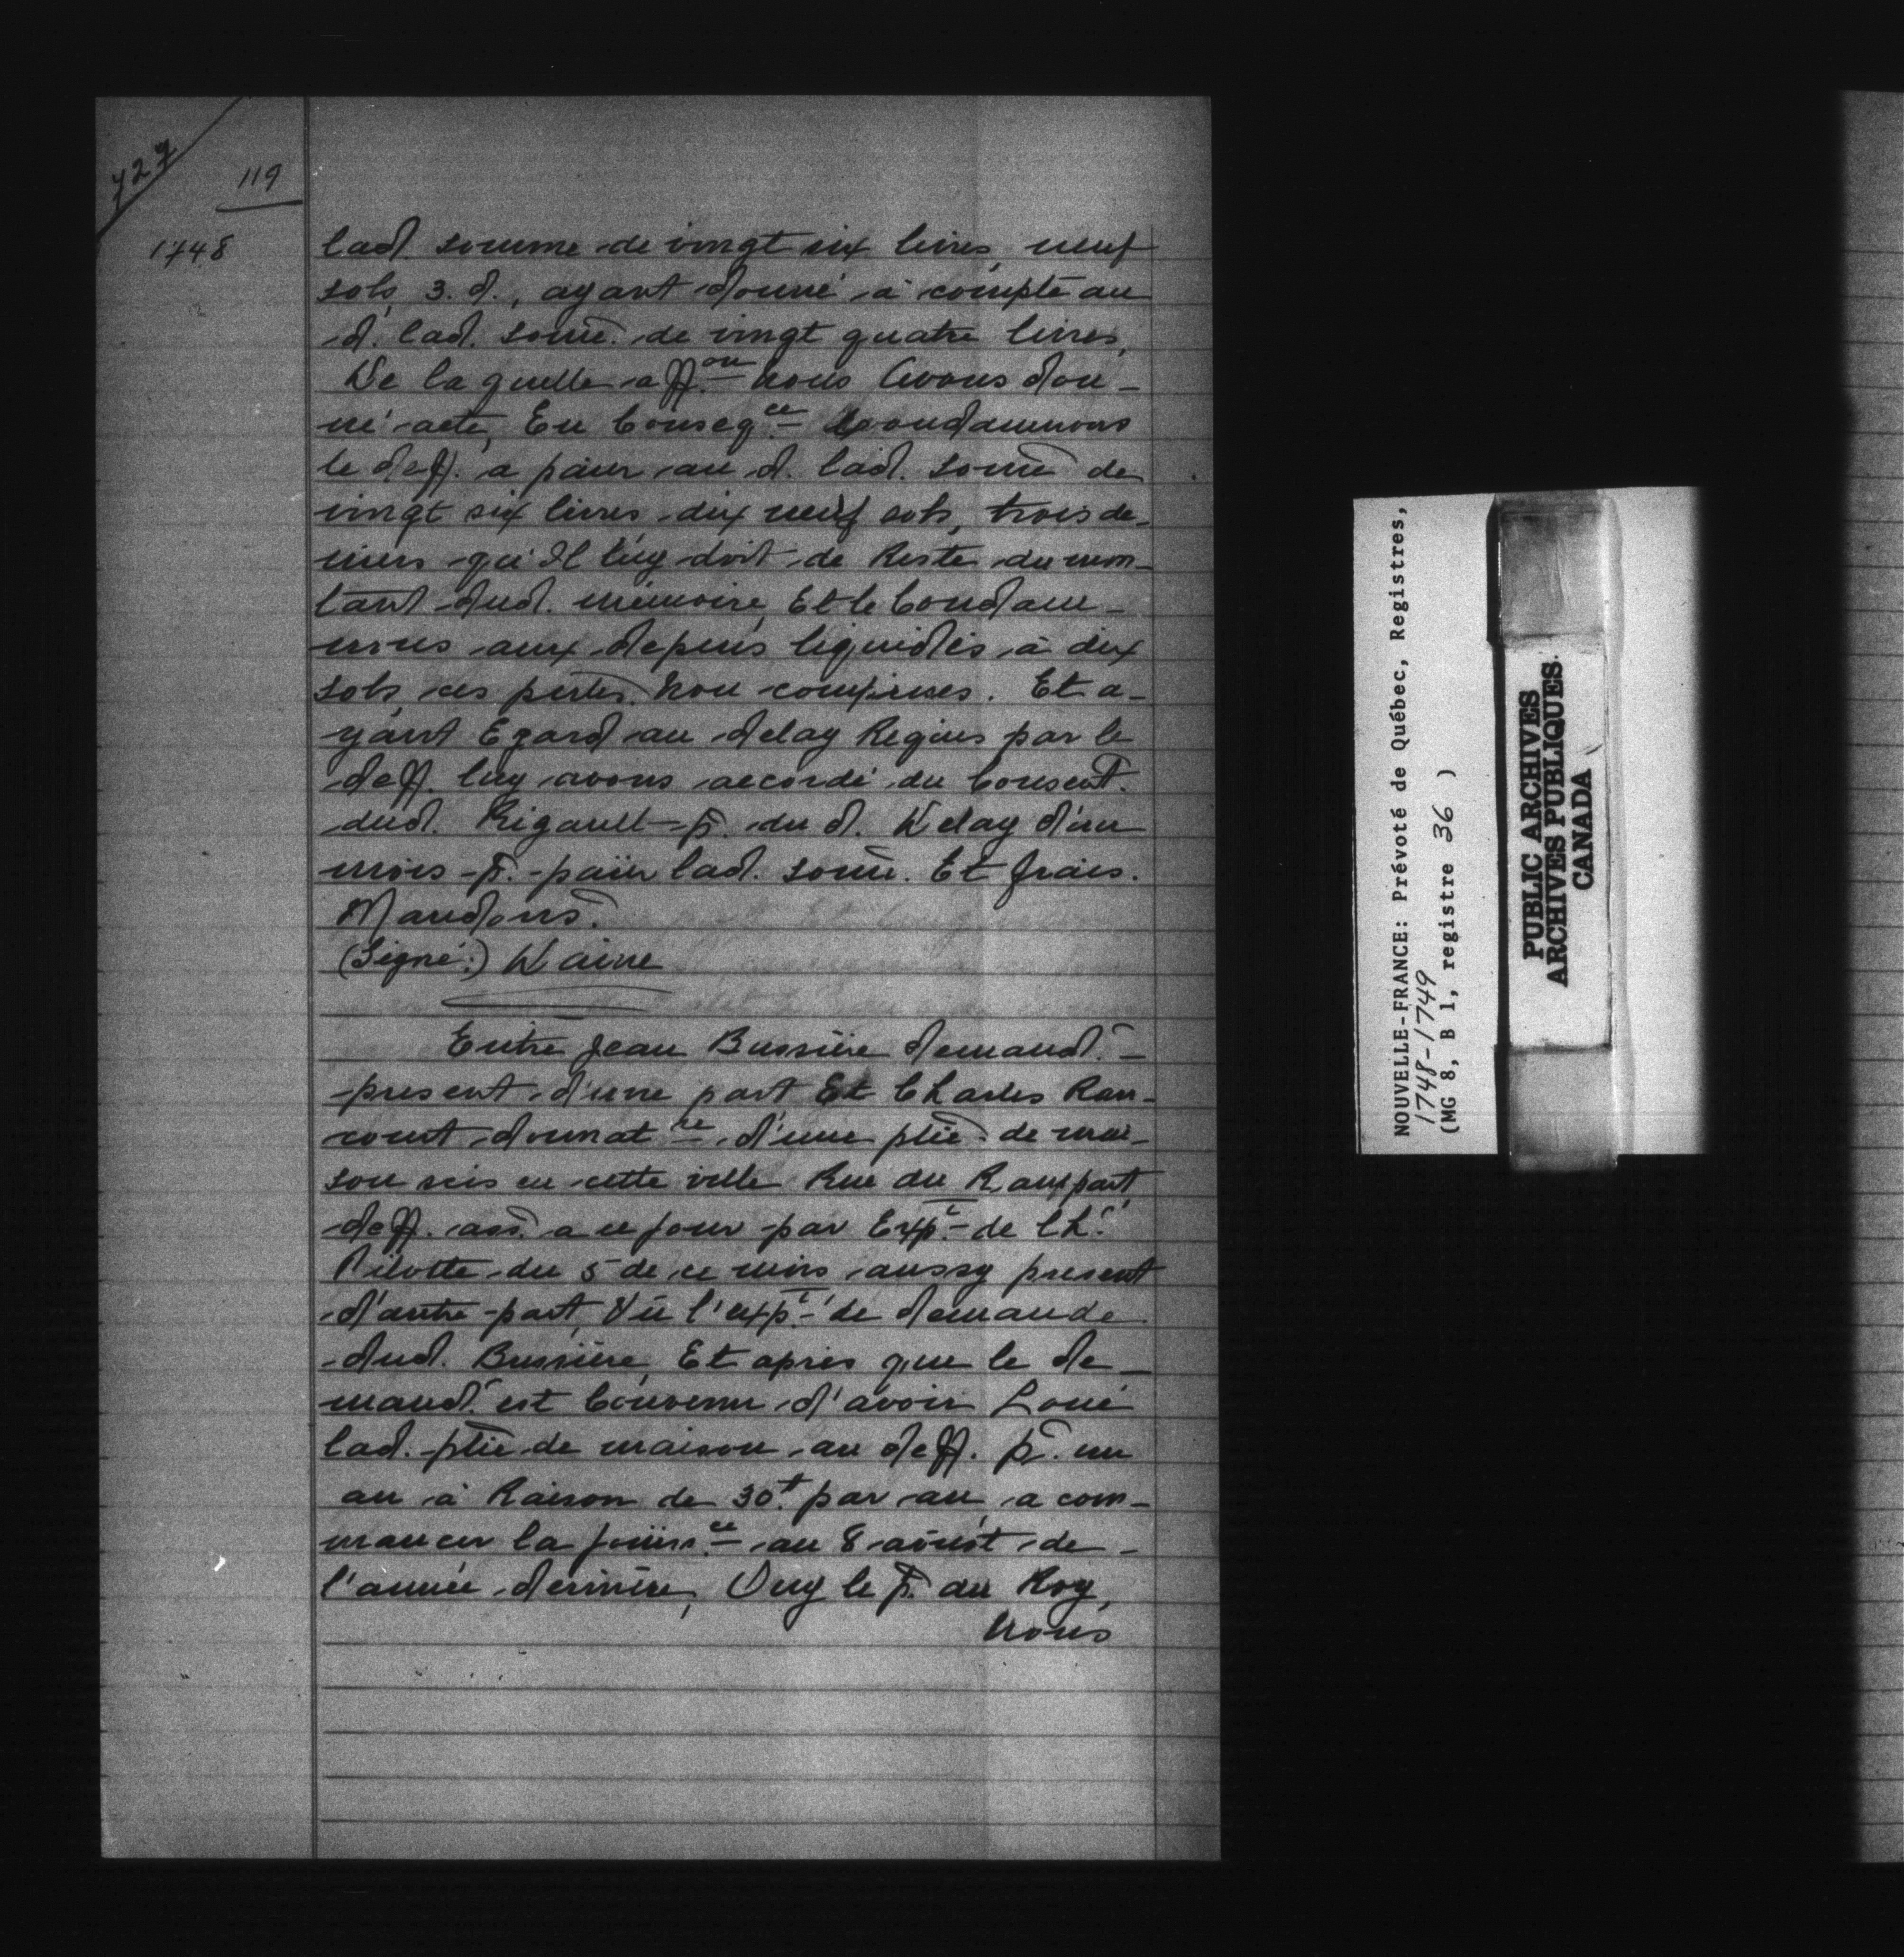 727
119
1748
lad. somme de vingt six livres, neuf
sols, 3. d., ayant donné à compte au
d. lad. some. de vingt quatre livres,
De laquelle aff.on nous avons don-
né acte, En Conseq.ce Condamnons
le deff. a païer au d. lad. some de
vingt six livres dix neuf sols, trois de-
niers qu'Il luy doit de Reste du mon-
tant dud. mémoire, Et le Condam-
nons aux depens liquidés à dix
sols, ces ptes. non comprises. Et a-
yant Egard au delay Requis par le
deff. luy avons accordé du Consent.
dud. Rigault p. du d. Delay d'un
mois p. païer lad. some. Et frais.
Mandons.
(Signé:) Daine
Entre Jean Bussière demand.r
present d'une part Et Charles Ran-
court donnat.re d'une ptie. de mai-
son scis en cette ville Rue du Rampart,
deff. ass. a ce jour par Exp.t de Ch.
Pilotte du 5 de ce mois aussy present
d'autre part, Vu l'exp.t de demande
dud. Bussière, Et après que le de-
mand.r est Convenu d'avoir Loué
lad. ptie de maison au deff. p. un
an à Raison de 30.t par an, a com-
mancer la jouiss.ce au 8 août de
l'année derniere, Ouy le p. du Roy,
Nous
NOUVELLE-FRANCE: Prévoté de Québec, Registres,
1748-1749
(MG 8, B 1, registre 36 )
PUBLIC ARCHIVES
ARCHIVES PUBLIQUES
CANADA